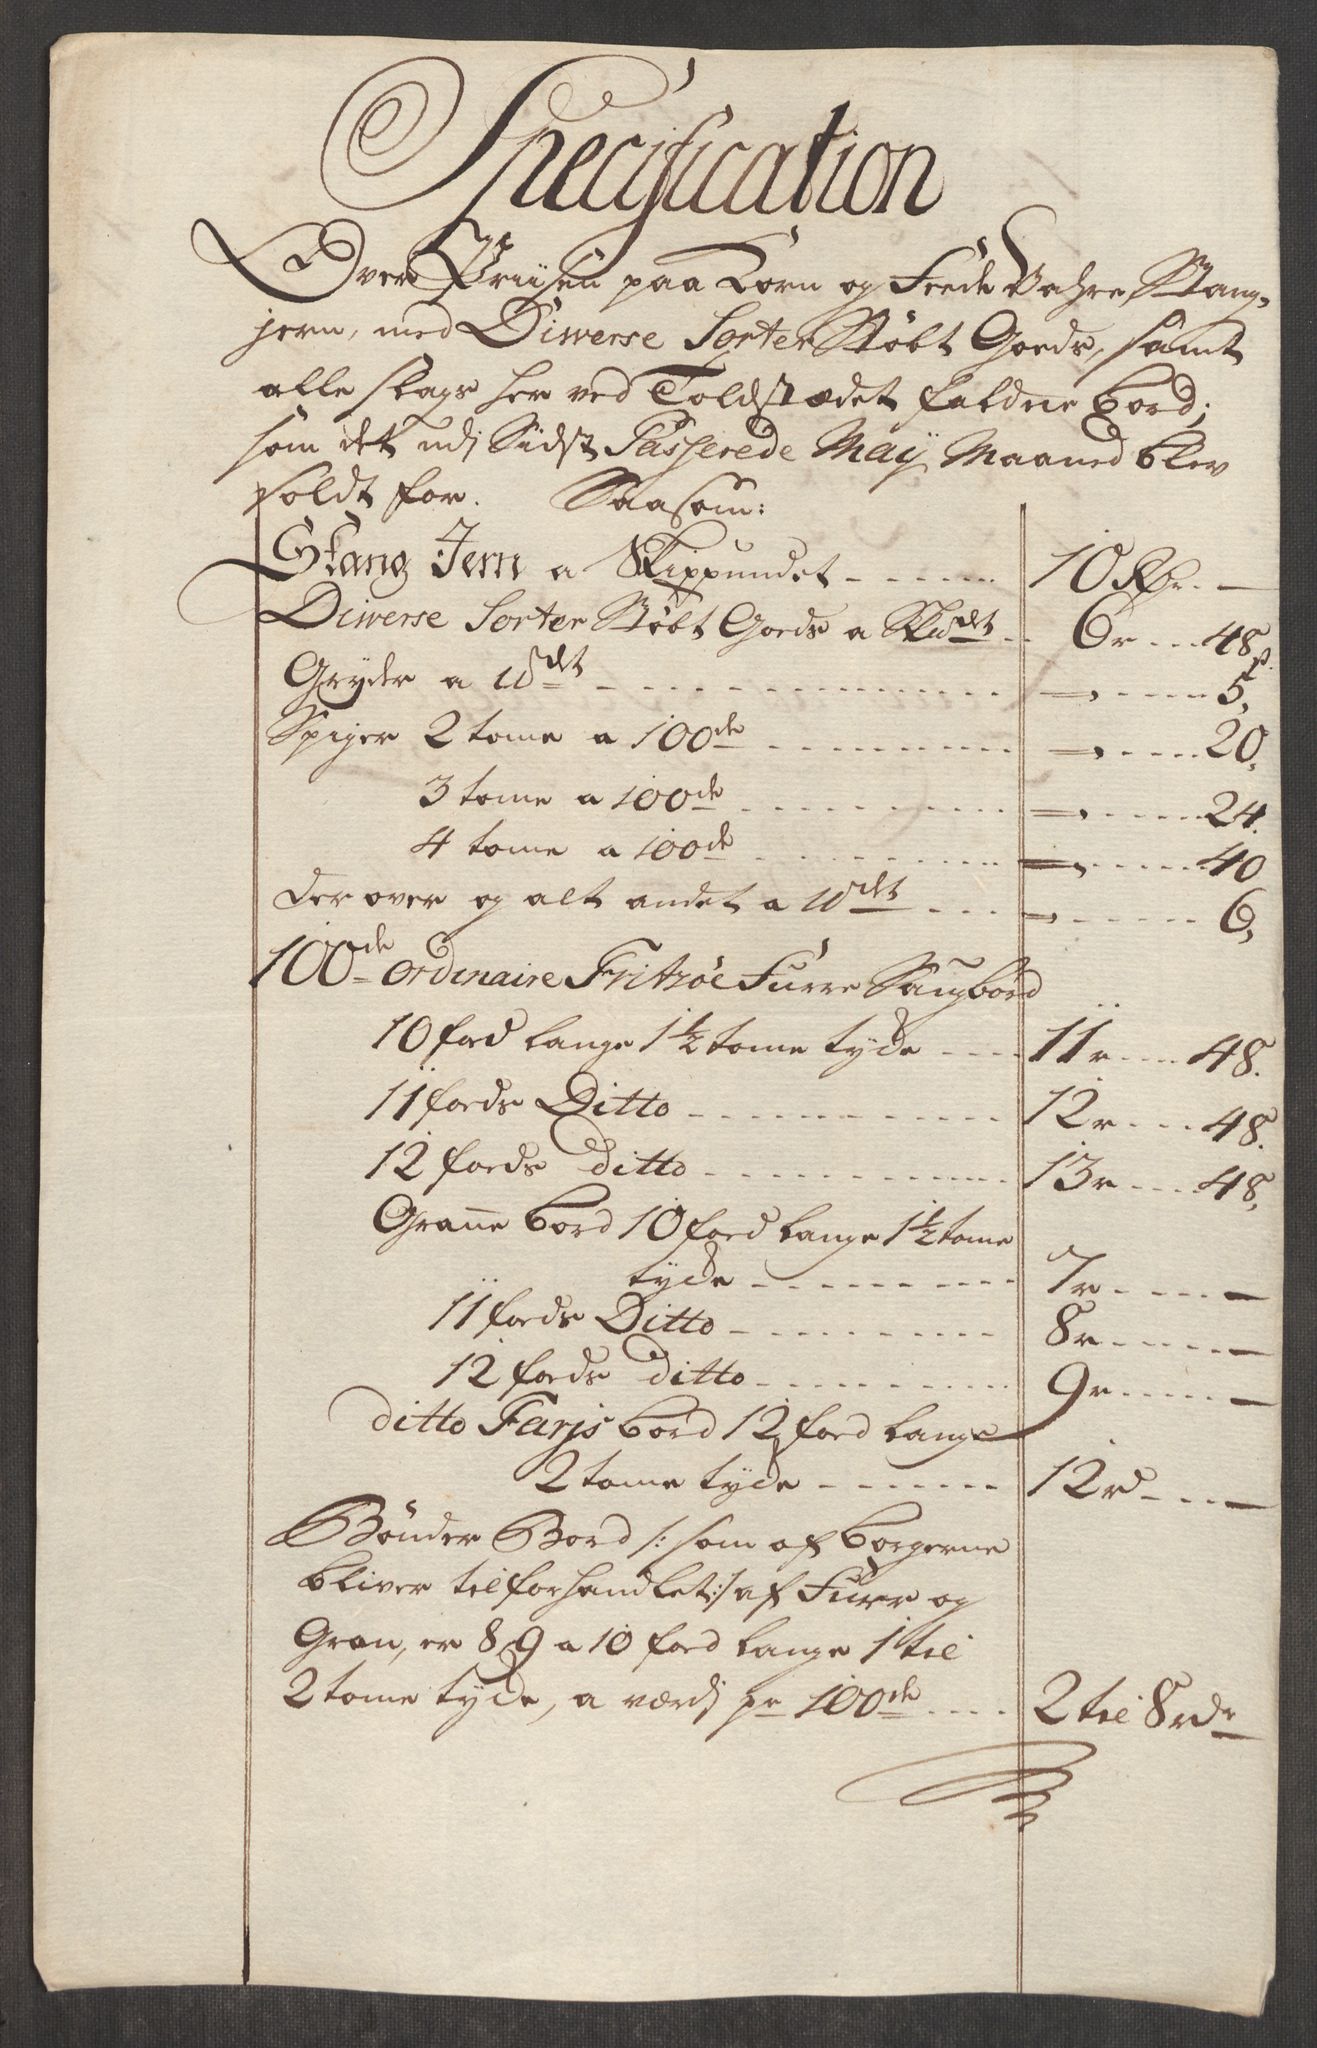 Specification
Over Priisen paa Korn og Feede Vahre, Stang-
jern, med Diwerse Sorter Støbt Goeds, samt
alle slags her ved Toldstædet faldne bord;
som det udj Sidst Passerede Maÿ Maaned blev
soldt for. Saasom:
Stang Jern a Skippundet 10 Rdr. —
Diwerse Sorter Støbt Goeds a Sk℔det 6 r 48 s.
Gryder a ℔det — 5.
Spiger 2 tome a 100de — 20.
3 tome a 100de — 24.
4 tome a 100de — 40
der over og alt andet a ℔det — 6.
100de ordinaire Fritzøe Furre Saugbord
10 foed lange 1½ tome tyde 11 r 48.
11 foeds Ditto 12 r 48.
12 foeds ditto 13 r 48.
Grane bord 10 foed lange 1½ tome
tyde 7 r —
11 foeds Ditto 8 r —
12 foeds ditto 9 r —
ditto Farjs bord 12 foed lange
2 tome tyde 12 rd —
Bønder Bord /: som af borgerne
bliver tilforhandlet :/ af Furr og
Gran, er 8, 9 a 10 foed lange 1 til
2 tome tyde, a værdj pr 100de 2 til 8 rdr